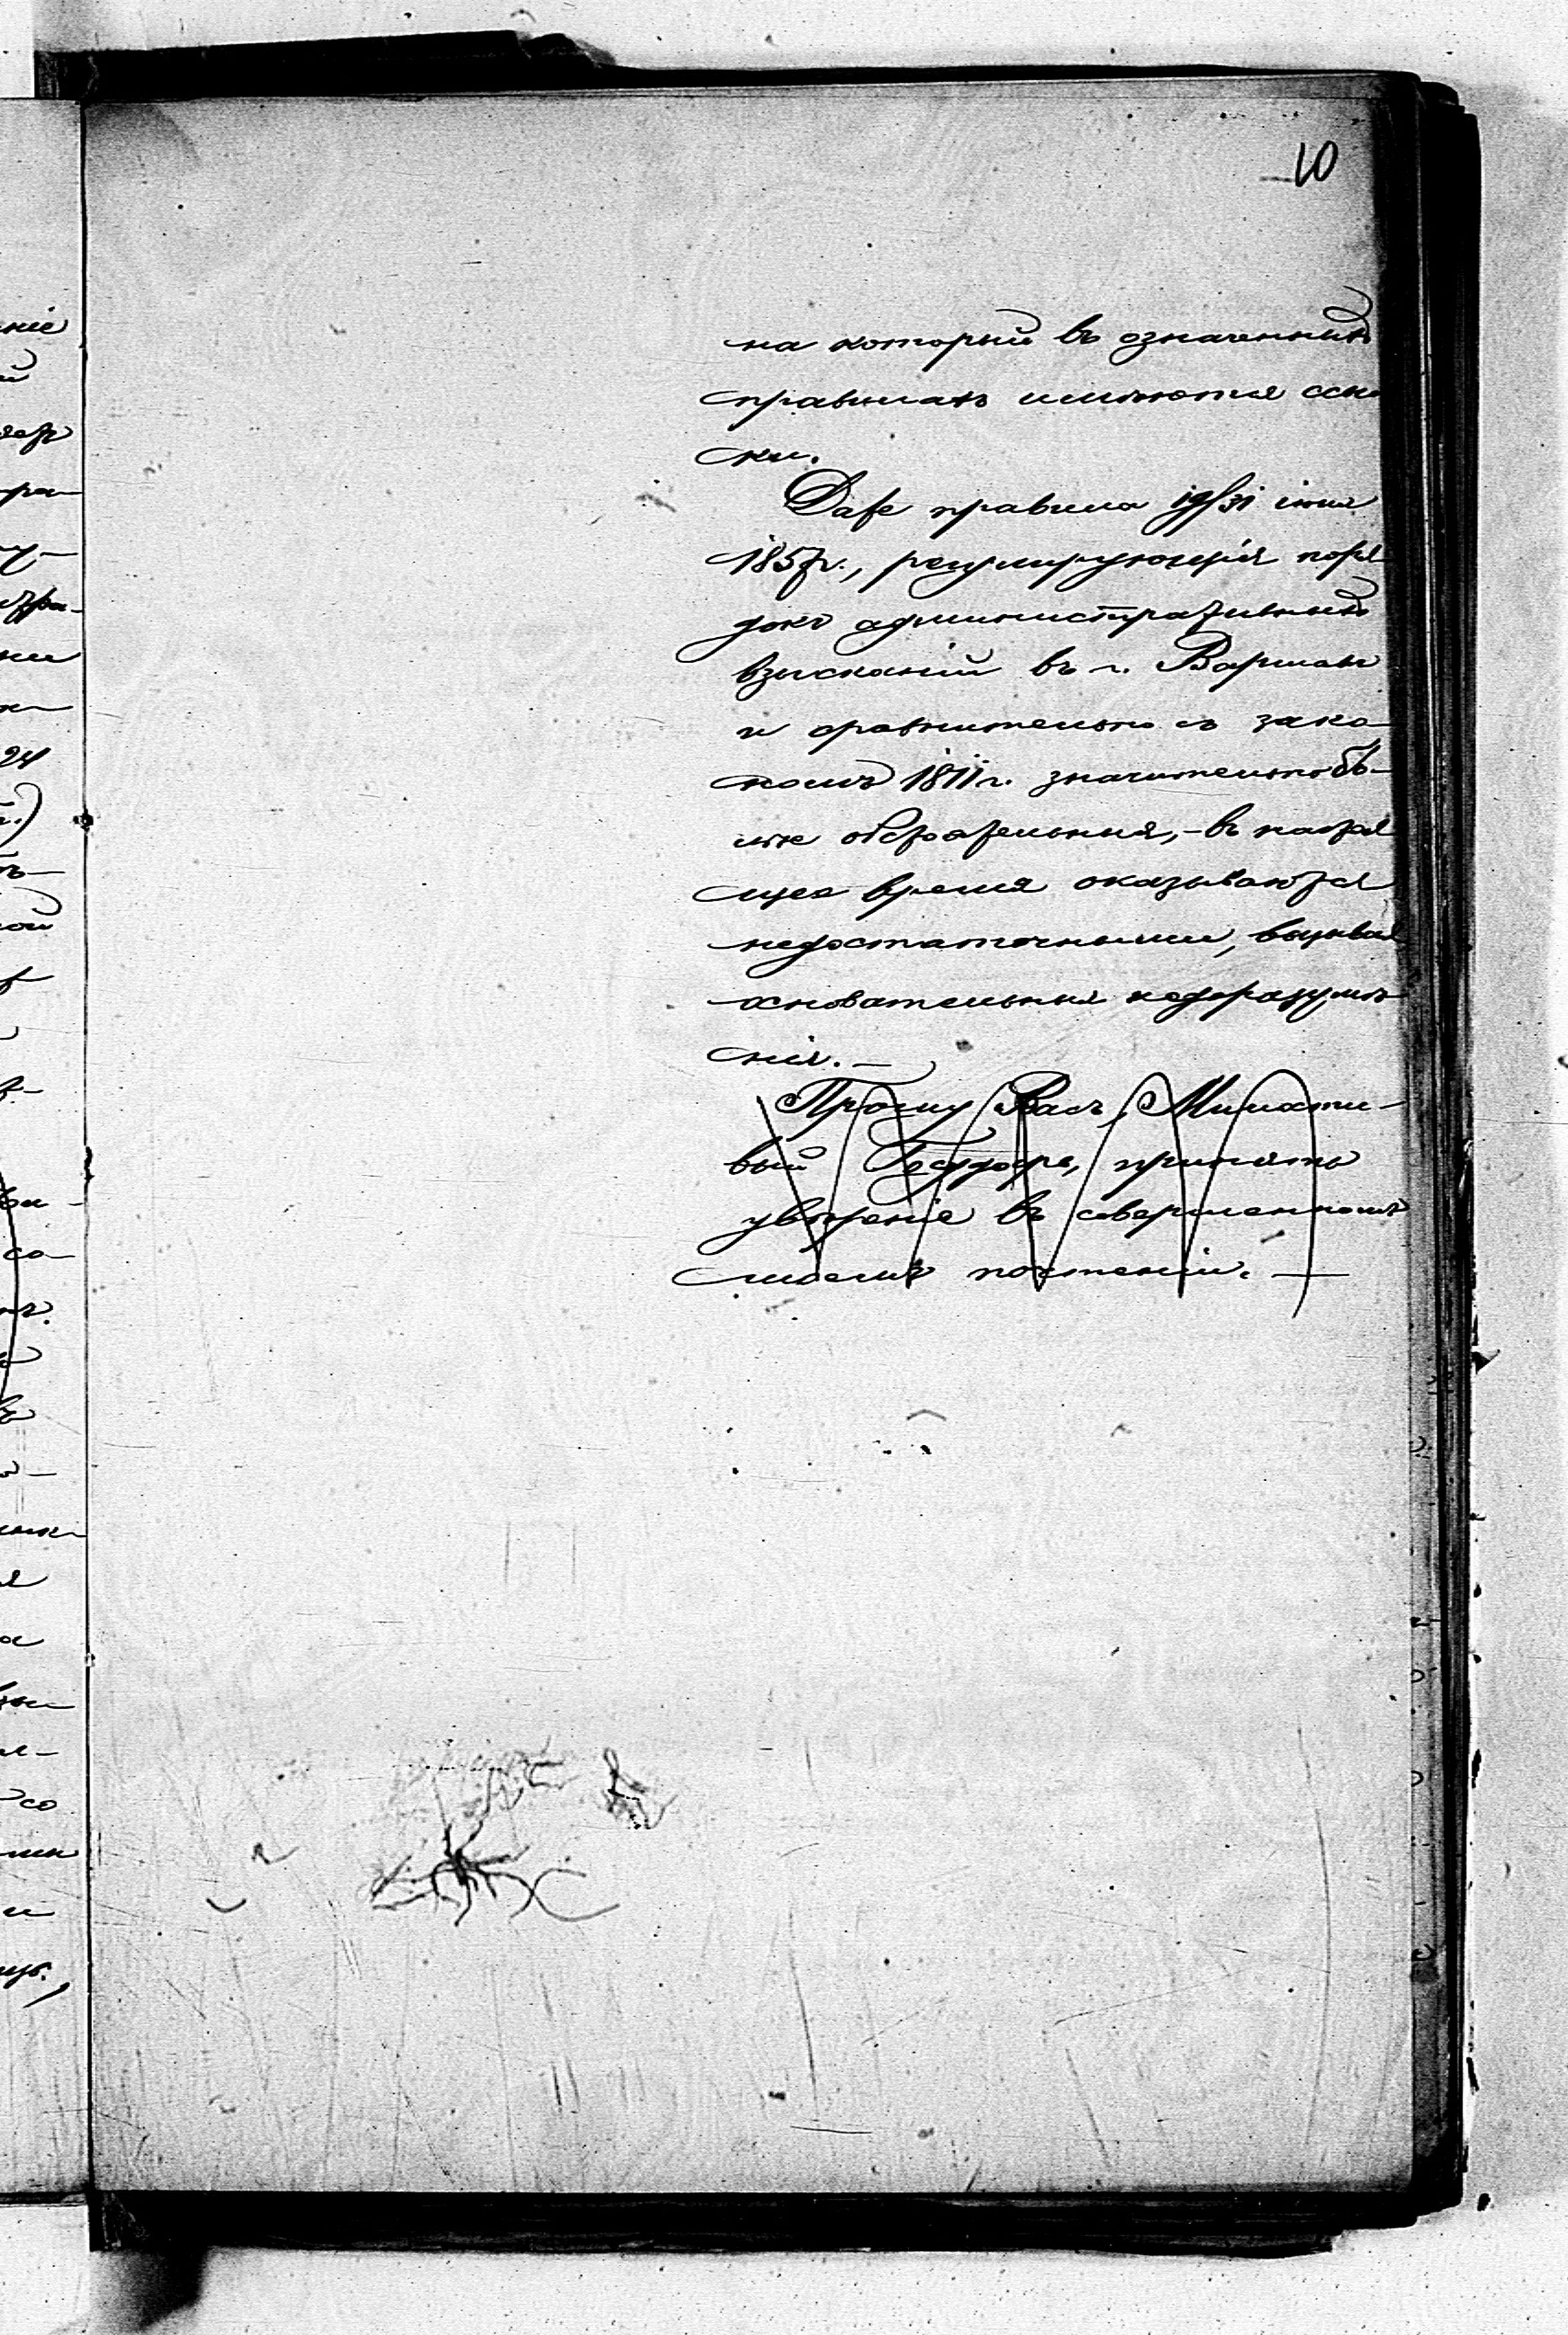 10
на который въ означенныхъ
правилахъ имѣются ссыл
ки.
Даже правила 19/31 іюля
1857г., регулирующія поря
докъ административныхъ
взысканій въ г. Варшавѣ
и сравнительно съ зако-
номъ 1811 г. значительно бо-
лѣе обстоятельныя, - въ настоя
щее время оказываются
недостаточными, вызывая
основательныя недоразумѣ
нія. -
Прошу Васъ, Милости-
вый Государь, принять
увѣреніе въ совершенномъ
моемъ почтеніи. -